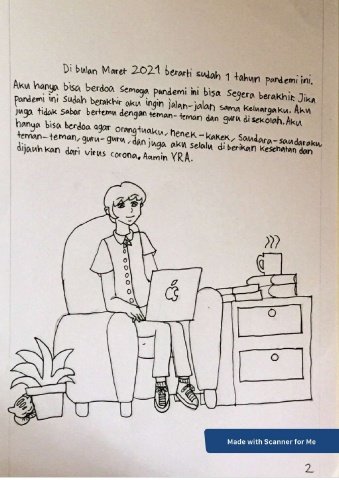 Di bulan Maret 2021 berarti sudah 1 tahun pandemi ini.
Aku hanya bisa berdoa semoga pandemi ini bisa segera berakhir. Jika
pandemi ini sudah berakhir aku ingin jalan-jalan sama keluargaku. Aku
juga tidak sabar bertemu dengan teman-teman dan guru di sekolah. Aku
hanya bisa berdoa agar orangtuaku, nenek-kakek, Saudara-saudaraku,
teman-teman, guru-guru, dan juga aku selalu di berikan kesehatan dan
dijauhkan dari virus corona, Aamiin YRA.
Made with Scanner for Me
2